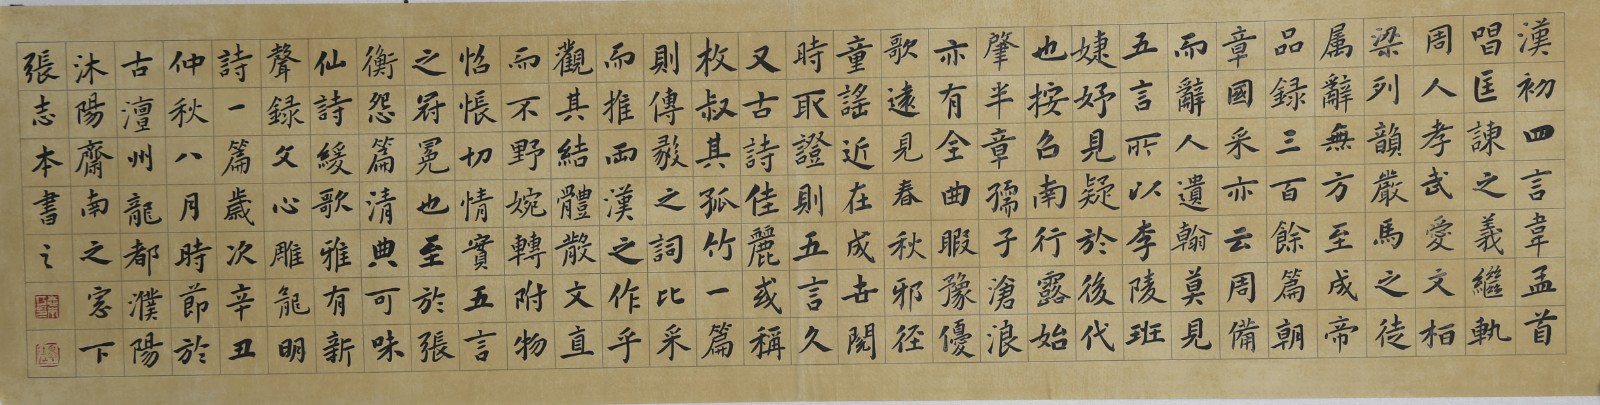 漢初四言韋孟首
唱匡諫之義繼軌
周人孝武愛文柏
梁列韻嚴馬之徒
属辭無方至成帝
品録三百餘篇朝
章國采亦云周備
而辭人遺翰莫見
五言所以李陵班
婕妤見疑於後代
也按召南行露始
肇半章孺子滄浪
亦有全曲暇豫優
歌遠見春秋邪径
童謠近在成世閱
時取證則五言久
又古詩佳麗或稱
枚叔其孤竹一篇
則傳毅之詞比采
而推兩漢之作乎
觀其結體散文直
而不野婉轉附物
怊悵切情實五言
之冠冕也至於張
衡怨篇清典可味
仙詩緩歌雅有新
聲録文心雕龍明
詩一篇歲次辛丑
仲秋八月時節於
古澶州龍都濮陽
沐陽齋南之窓下
張志本書之